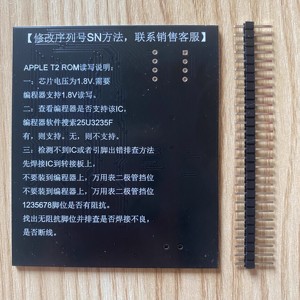 【修改序列号SN方法，联系销售客服】
APPLE T2 ROM读写说明：
一：芯片电压为1.8V,需要
编程器支持1.8V读写。
二：查看编程器是否支持该IC.
编程器软件搜索25U3235F
有，则支持，无，则不支持。
三：检测不到IC或者引脚出错排查方法
先焊接IC到转接板上，
不要装到编程器上，万用表二极管挡位
不要装到编程器上，万用表二极管挡位
1235678脚位是否有阻抗。
找出无阻抗脚位并排查是否焊接不良，
是否断线。